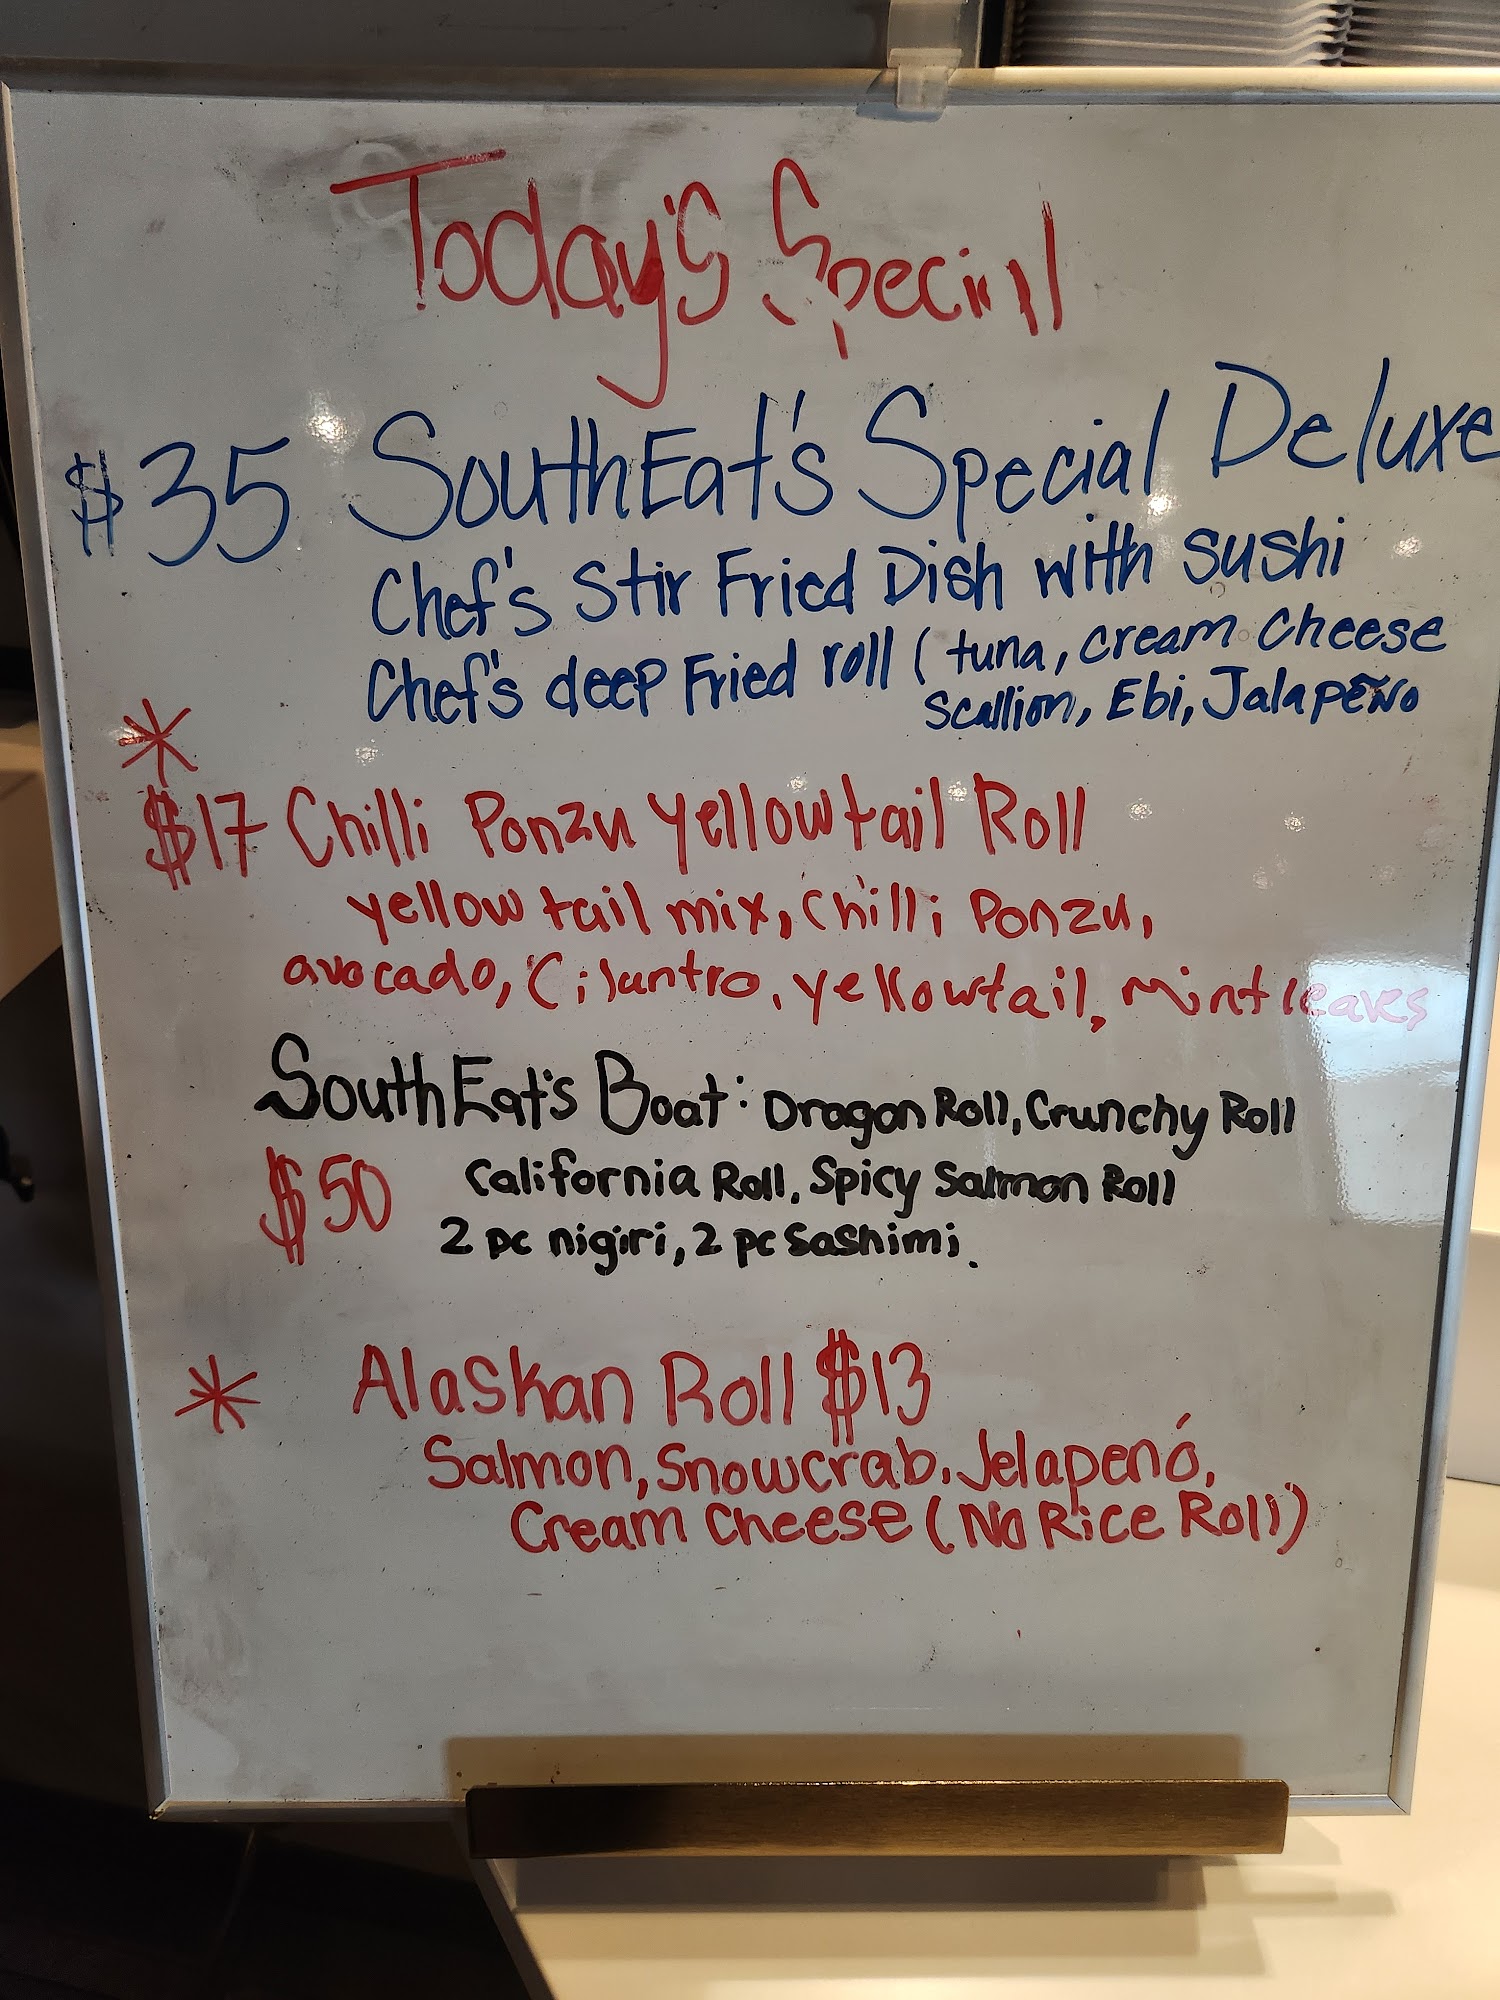 Today's Special
$35 SouthEat's Special Deluxe
Chef's Stir Fried Dish with sushi
Chef's deep Fried roll (tuna, cream cheese
scallion, Ebi, Jalapeño
*
$17 Chilli Ponzu yellowtail Roll
yellow tail mix, chilli Ponzu,
avocado, Cilantro, yellowtail, mint leaves
SouthEat's Boat: Dragon Roll, Crunchy Roll
$50 California Roll, Spicy Salmon Roll
2 pc nigiri, 2 pc Sashimi.
* Alaskan Roll $13
Salmon, Snowcrab, Jelapenó,
Cream Cheese (No Rice Roll)